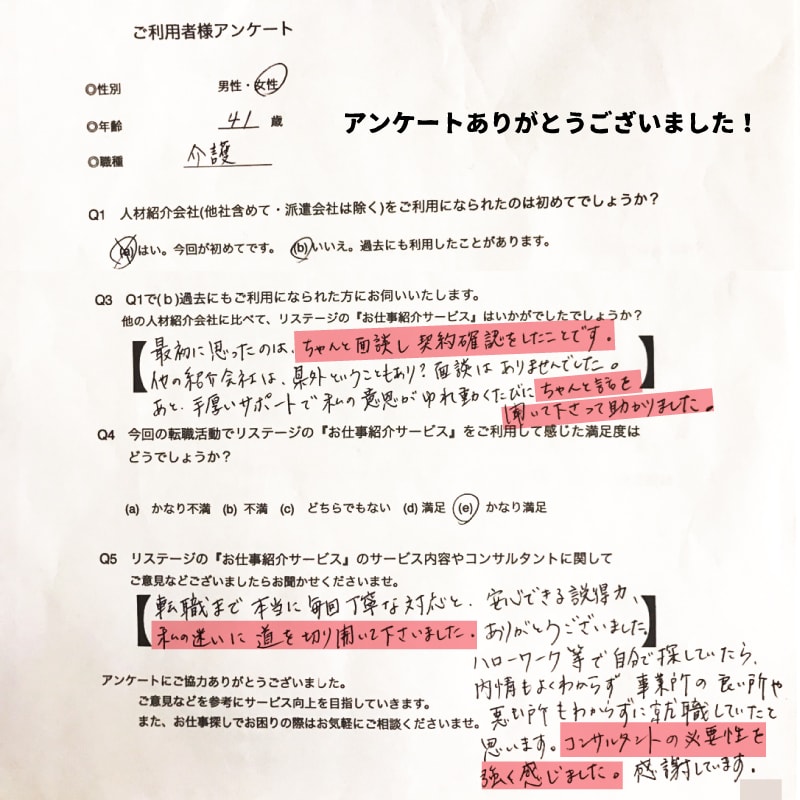 ご利用者様アンケート
◎性別　男性・女性
◎年齢　41 歳
アンケートありがとうございました！
◎職種　介護
Q1　人材紹介会社(他社含めて・派遣会社は除く)をご利用になられたのは初めてでしょうか？
(a)はい。今回が初めてです。　(b)いいえ。過去にも利用したことがあります。
Q3　Q1で(b)過去にもご利用になられた方にお伺いいたします。
他の人材紹介会社に比べて、リステージの『お仕事紹介サービス』はいかがでしたでしょうか？
【最初に思ったのは、ちゃんと面談し契約確認をしたことです。
他の紹介会社は、県外ということもあり？面談はありませんでした。
あと、手厚いサポートで私の意思がゆれ動くたびにちゃんと話を
聞いて下さって助かりました。】
Q4　今回の転職活動でリステージの『お仕事紹介サービス』をご利用して感じた満足度は
どうでしょうか？
(a)　かなり不満　(b)　不満　(c)　どちらでもない　(d) 満足　(e)　かなり満足
Q5　リステージの『お仕事紹介サービス』のサービス内容やコンサルタントに関して
ご意見などございましたらお聞かせくださいませ。
【転職まで本当に毎回丁寧な対応と、安心できる説得力、
私の迷いに道を切り開いて下さいました。ありがとうございました。】
ハローワーク等で自分で探していたら、
内情もよくわからず事業所の良い所や
悪い所もわからずに就職していたと
思います。コンサルタントの必要性を
強く感じました。感謝しています。
アンケートにご協力ありがとうございました。
ご意見などを参考にサービス向上を目指していきます。
また、お仕事探しでお困りの際はお気軽にご相談くださいませ。